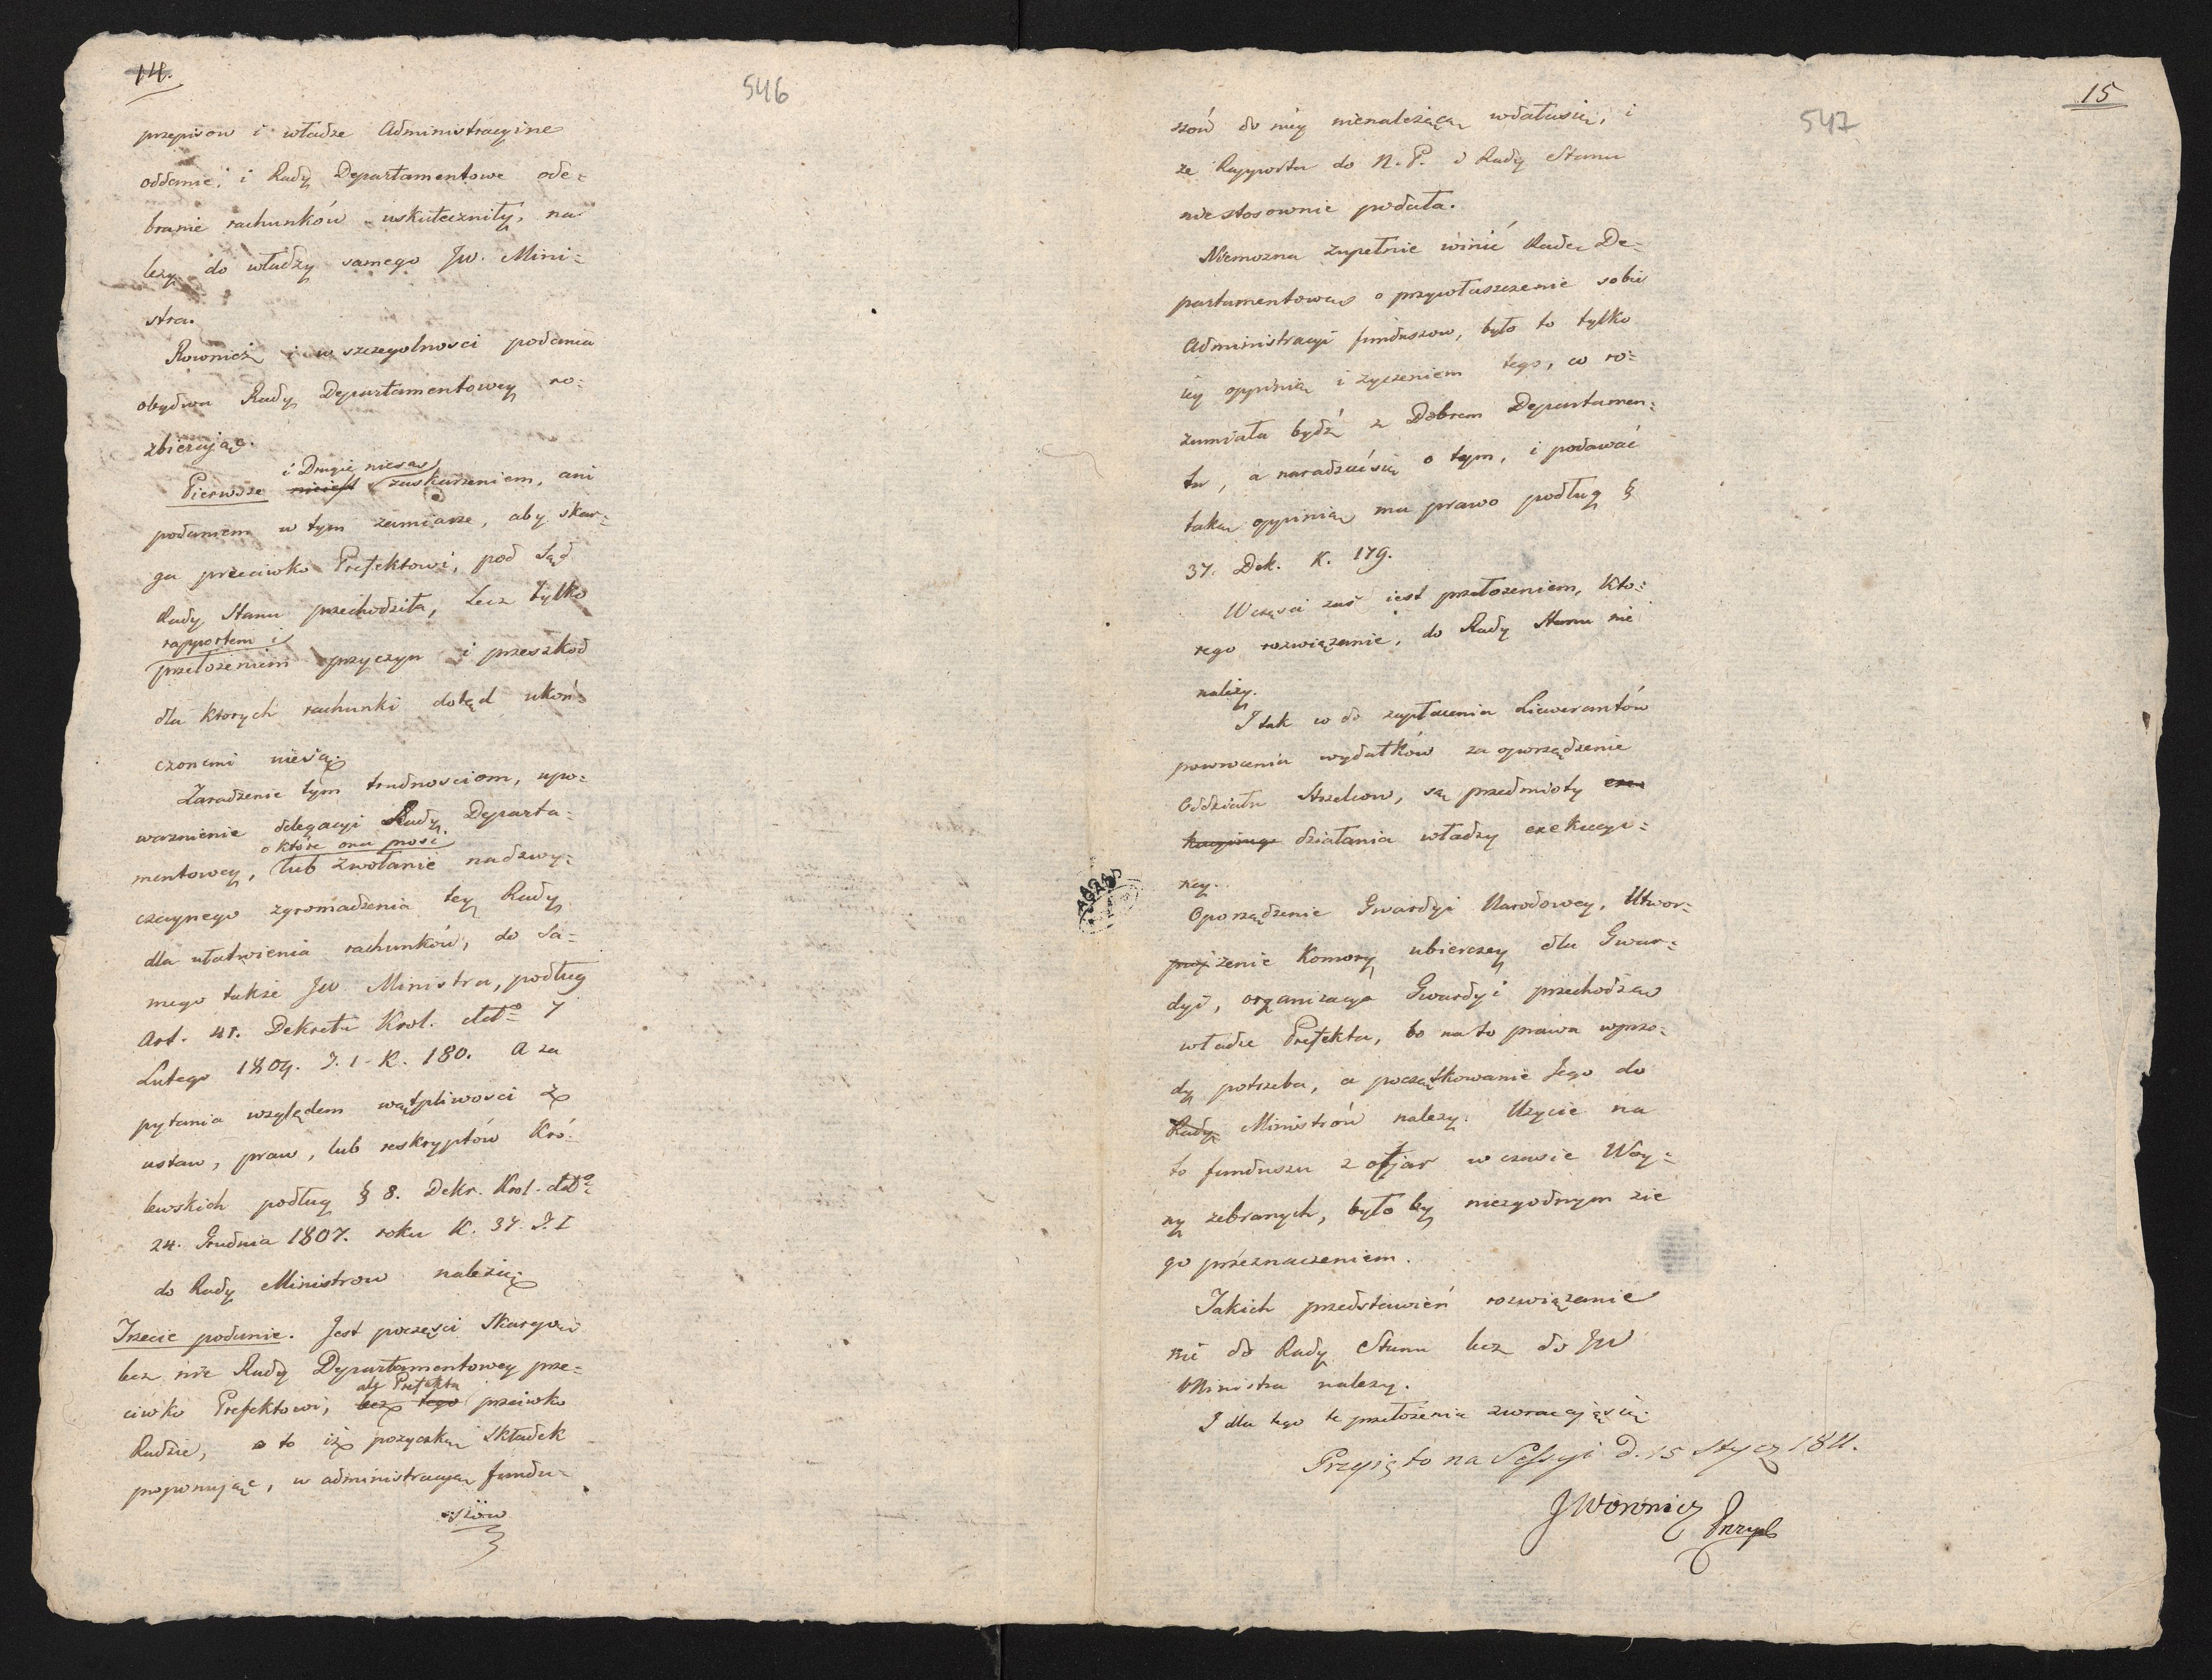 14.
546
przepisow i władze Administracyine
oddanie, i Rady Departamentowe ode=
branie rachunków uskuteczniły, na
leży do władzy samego JW. Mini=
stra.
Rownież i w szczegolnosci podania
obydwa Rady Departamentowey ro=
zbieraiąc.
i Drugie niesą
Pierwsze nieiest zaskarzeniem, ani
podaniem w tym zamiarze, aby skar=
ga przeciwko Prefektowi, pod Sąd
Rady Stanu przechodziła, Lecz tylko
rapportem i
przełożeniem przyczyn i przeszkod
dla ktorych rachunki dotąd ukoń
czonemi niesą.
Zaradzenie tym trudnosciom, upo=
ważnienie delegacyi Rady Departa=
o które ona prosi
mentowey, lub zwołanie nadzwy=
czaynego zgromadzenia tey Rady
dla ułatwienia rachunków, do Sa=
mego także JW Ministra, podług
Art. 41. Dekretu Krol. ddto 7
Lutego 1809. T. 1. K. 180. A za
pytania względem wątpliwosci z
ustaw, praw, lub reskryptów Kró=
lewskich podług § 8. Dekr. Krol. ddto
24. Grudnia 1807. roku K. 37. T. I
do Rady Ministrow należą.
Trzecie podanie. Jest poczęsci Skargą
lecz nie Rady Departamentowey prze=
ale Prefekta
ciwko Prefektowi, lecz tego przeciwko
Radzie, o to iż pożyczkę Składek
proponuiąc, w administracyą fundu=
szów
15
547
szów do niey nienależącą wdałasię, i
że Rapporta do N. P. i Rady Stanu
nie stosownie podała.
Niemożna zupełnie winić Radę De=
partamentową o przywłaszczenie sobie
Administracyi funduszow, było to tylko
iey opinią i życzeniem tego, co ro=
zumiała bydź z Dobrem Departamen=
tu, a naradzaćsię o tym, i podawać
taką opinią ma prawo podług §
37. Dek. K. 179.
Wczęsci zaś iest przełożeniem, kto=
rego rozwiązanie, do Rady Stanu nie
należy.
I tak co do zapłacenia Liwerantów
powrócenia wydatków za oporządzenie
Oddziału Strzelcow, są przedmioty exe
kucyinego działania władzy exekucyi=
ney.
Oporządzenie Gwardyi Narodowey, Utwor=
zenie Komory ubierczey dla Gwar=
dyi, organizacya Gwardyi przechodzą
władze Prefekta, bo na to prawa wprzo=
dy potrzeba, a początkowanie Jego do
Rady Ministrów należy. Użycie na
to funduszu z ofiar w czasie Woy=
ny zebranych, było by niezgodnym zie
go przeznaczeniem.
Takich przedstawień rozwiązanie
nie do Rady Stanu lecz do JW
Ministra należy.
I dla tego te przełożenia zwracaiąsię.
Przyięto na Sessyi D. 15 Stycz 1811.
JWoronicz